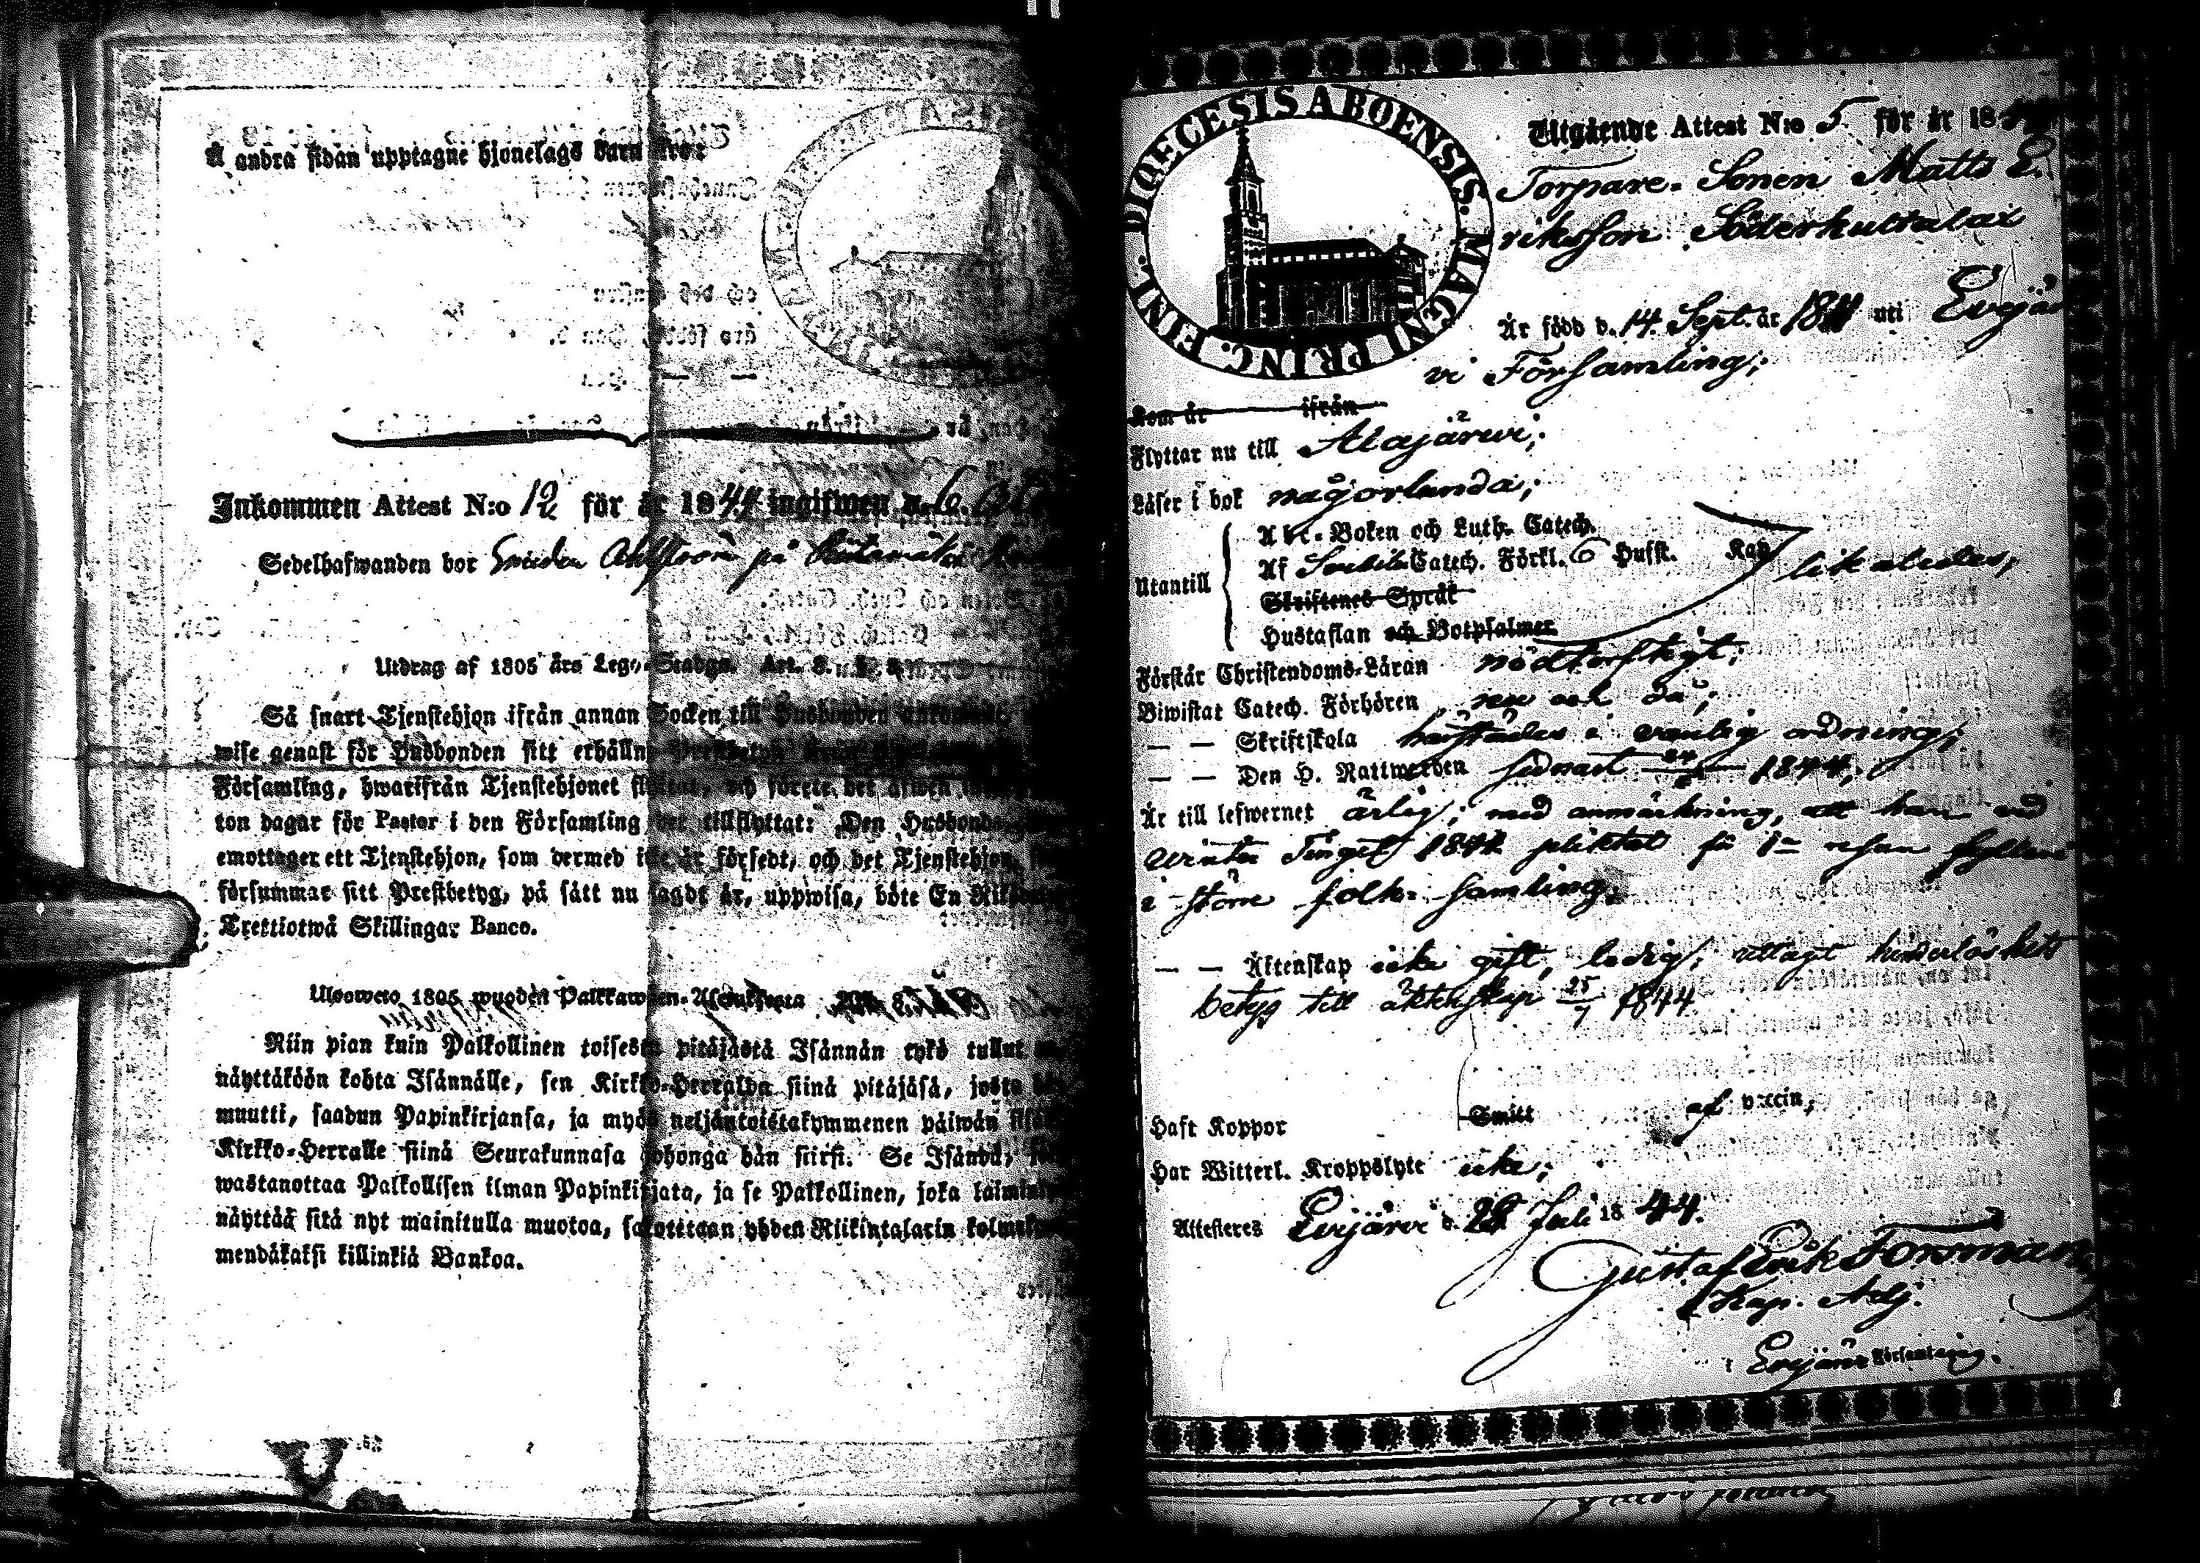 Å andra sidan upptagne hjonelags barn äro:
Inkommen Attest N:o 12 för år 1844 ingifwen d. 6.
Sedelhafwanden bor Smeden Ahlström på
Utdrag af 1805 års Lego-Stadga. Art. 3. §. 8
Så snart Tjenstehjon ifrån annan Socken till Husbonden
wise genast för Husbonden sitt erhållna
Församling, hwarifrån Tjenstehjonet flyttat, och förete det äfwen
ton dagar för Pastor i den Församling det tillflyttat: Den Husbonde
emottager ett Tjenstehjon, som dermed icke är försedt, och det Tjenstehjon,
försummar sitt Prestbetyg, på sätt nu sagdt är, uppwisa, böte En
Trettiotwå Skillingar Banco.
Ulosweto 1805 wuoden Palkkawäen-Asetuksesta
Niin pian kuin Palkollinen toisesta pitäjästä Isännän tykö tullut
näyttäköön kohta Isännälle, sen Kirkko-Herralda siinä pitäjäsä, josta
muutti, saadun Papinkirjansa, ja myös neljäntoistakymmenen päiwän
Kirkko-Herralle siinä Seurakunnasa johonga hän siirsi. Se Isändä,
wastanottaa Palkollisen ilman Papinkirjata, ja se Palkollinen, joka
näyttää sitä nyt mainitulla muotoa, sakotetaan yhden Riikintalarin
mendäkaksi killinkiä Bankoa.
DIOECESIS ABOENSIS. MAGNI PRINC. FINL.
Utgående Attest N:o 5 för år 18
Torpare-Sonen Matts E-
riksson Söderhultalax
Är född d. 14. Sept. år uti Evijär-
vi Församling;
Kom år ifrån
Flyttar nu till Alajärwi;
Läser i bok någorlunda;
Utantill
Abc-Boken och Luth. Catech.
Af Svebilii Catech. Förkl. 6 Hufst. Kap
likaledes,
Skriftenes Språk
Hustaflan och Botpsalmer
Förstår Christendoms-Läran nödtorftigt;
Biwistat Catech. Förhören nu och då;
— — Skriftskola härstädes i vanlig ordning;
— — Den H. Nattwarden sednast 1844;
Är till lefwernet ärlig; med anmärkning, att han wid
Winter Tinget 1844 pliktat för 1= resan fylleri
i större folk-samling.
— — Äktenskap icke gift, ledig; uttagit hinderlöshets
betyg till äktenskap 25/7 1844.
Haft Koppor Smitt af vaccin;
Har Witterl. Kroppslyte icke;
Attesteras Evijärvi d. Juli 1844.
Gustaf Erik Forsman,
Kap. Adj.
i Evijärvi Församling.